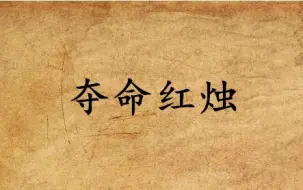 夺命红烛